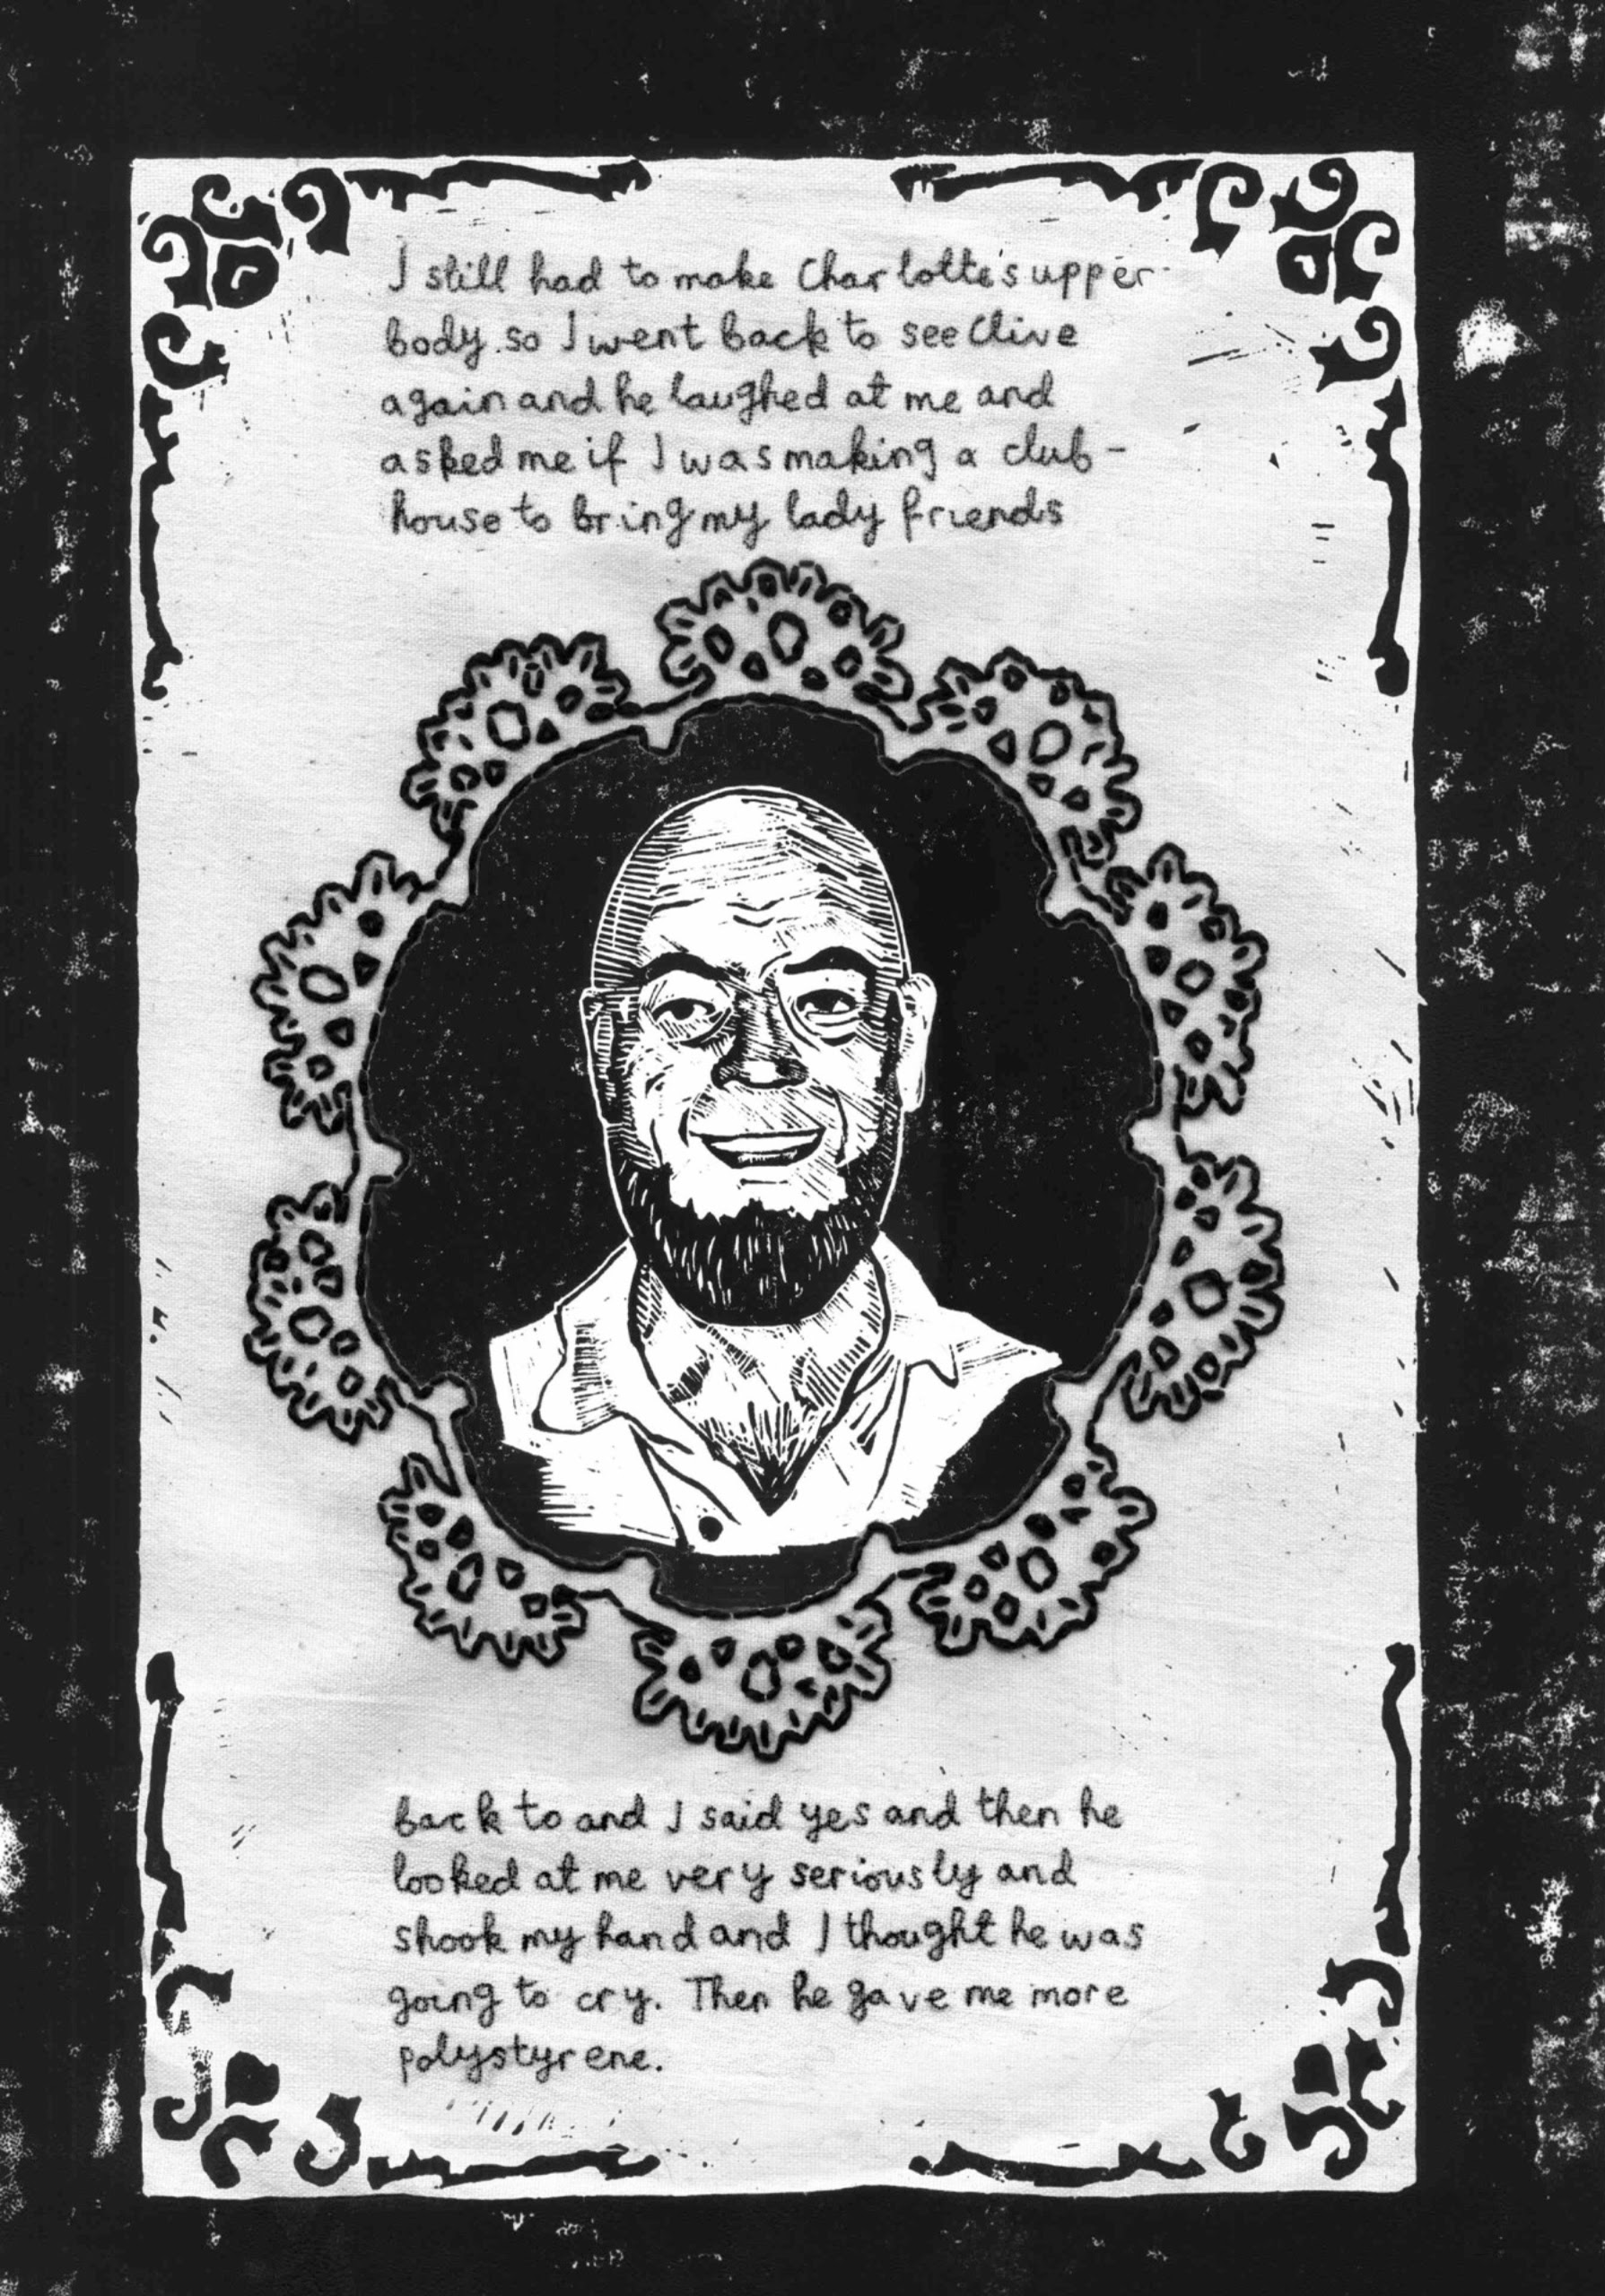 I still had to make Charlotte's upper-
body so I went back to see Clive
again and he laughed at me and
asked me if I was making a club-
house to bring my lady friends
back to and I said yes and then he
looked at me very seriously and
shook my hand and I thought he was
going to cry. Then he gave me more
polystyrene.